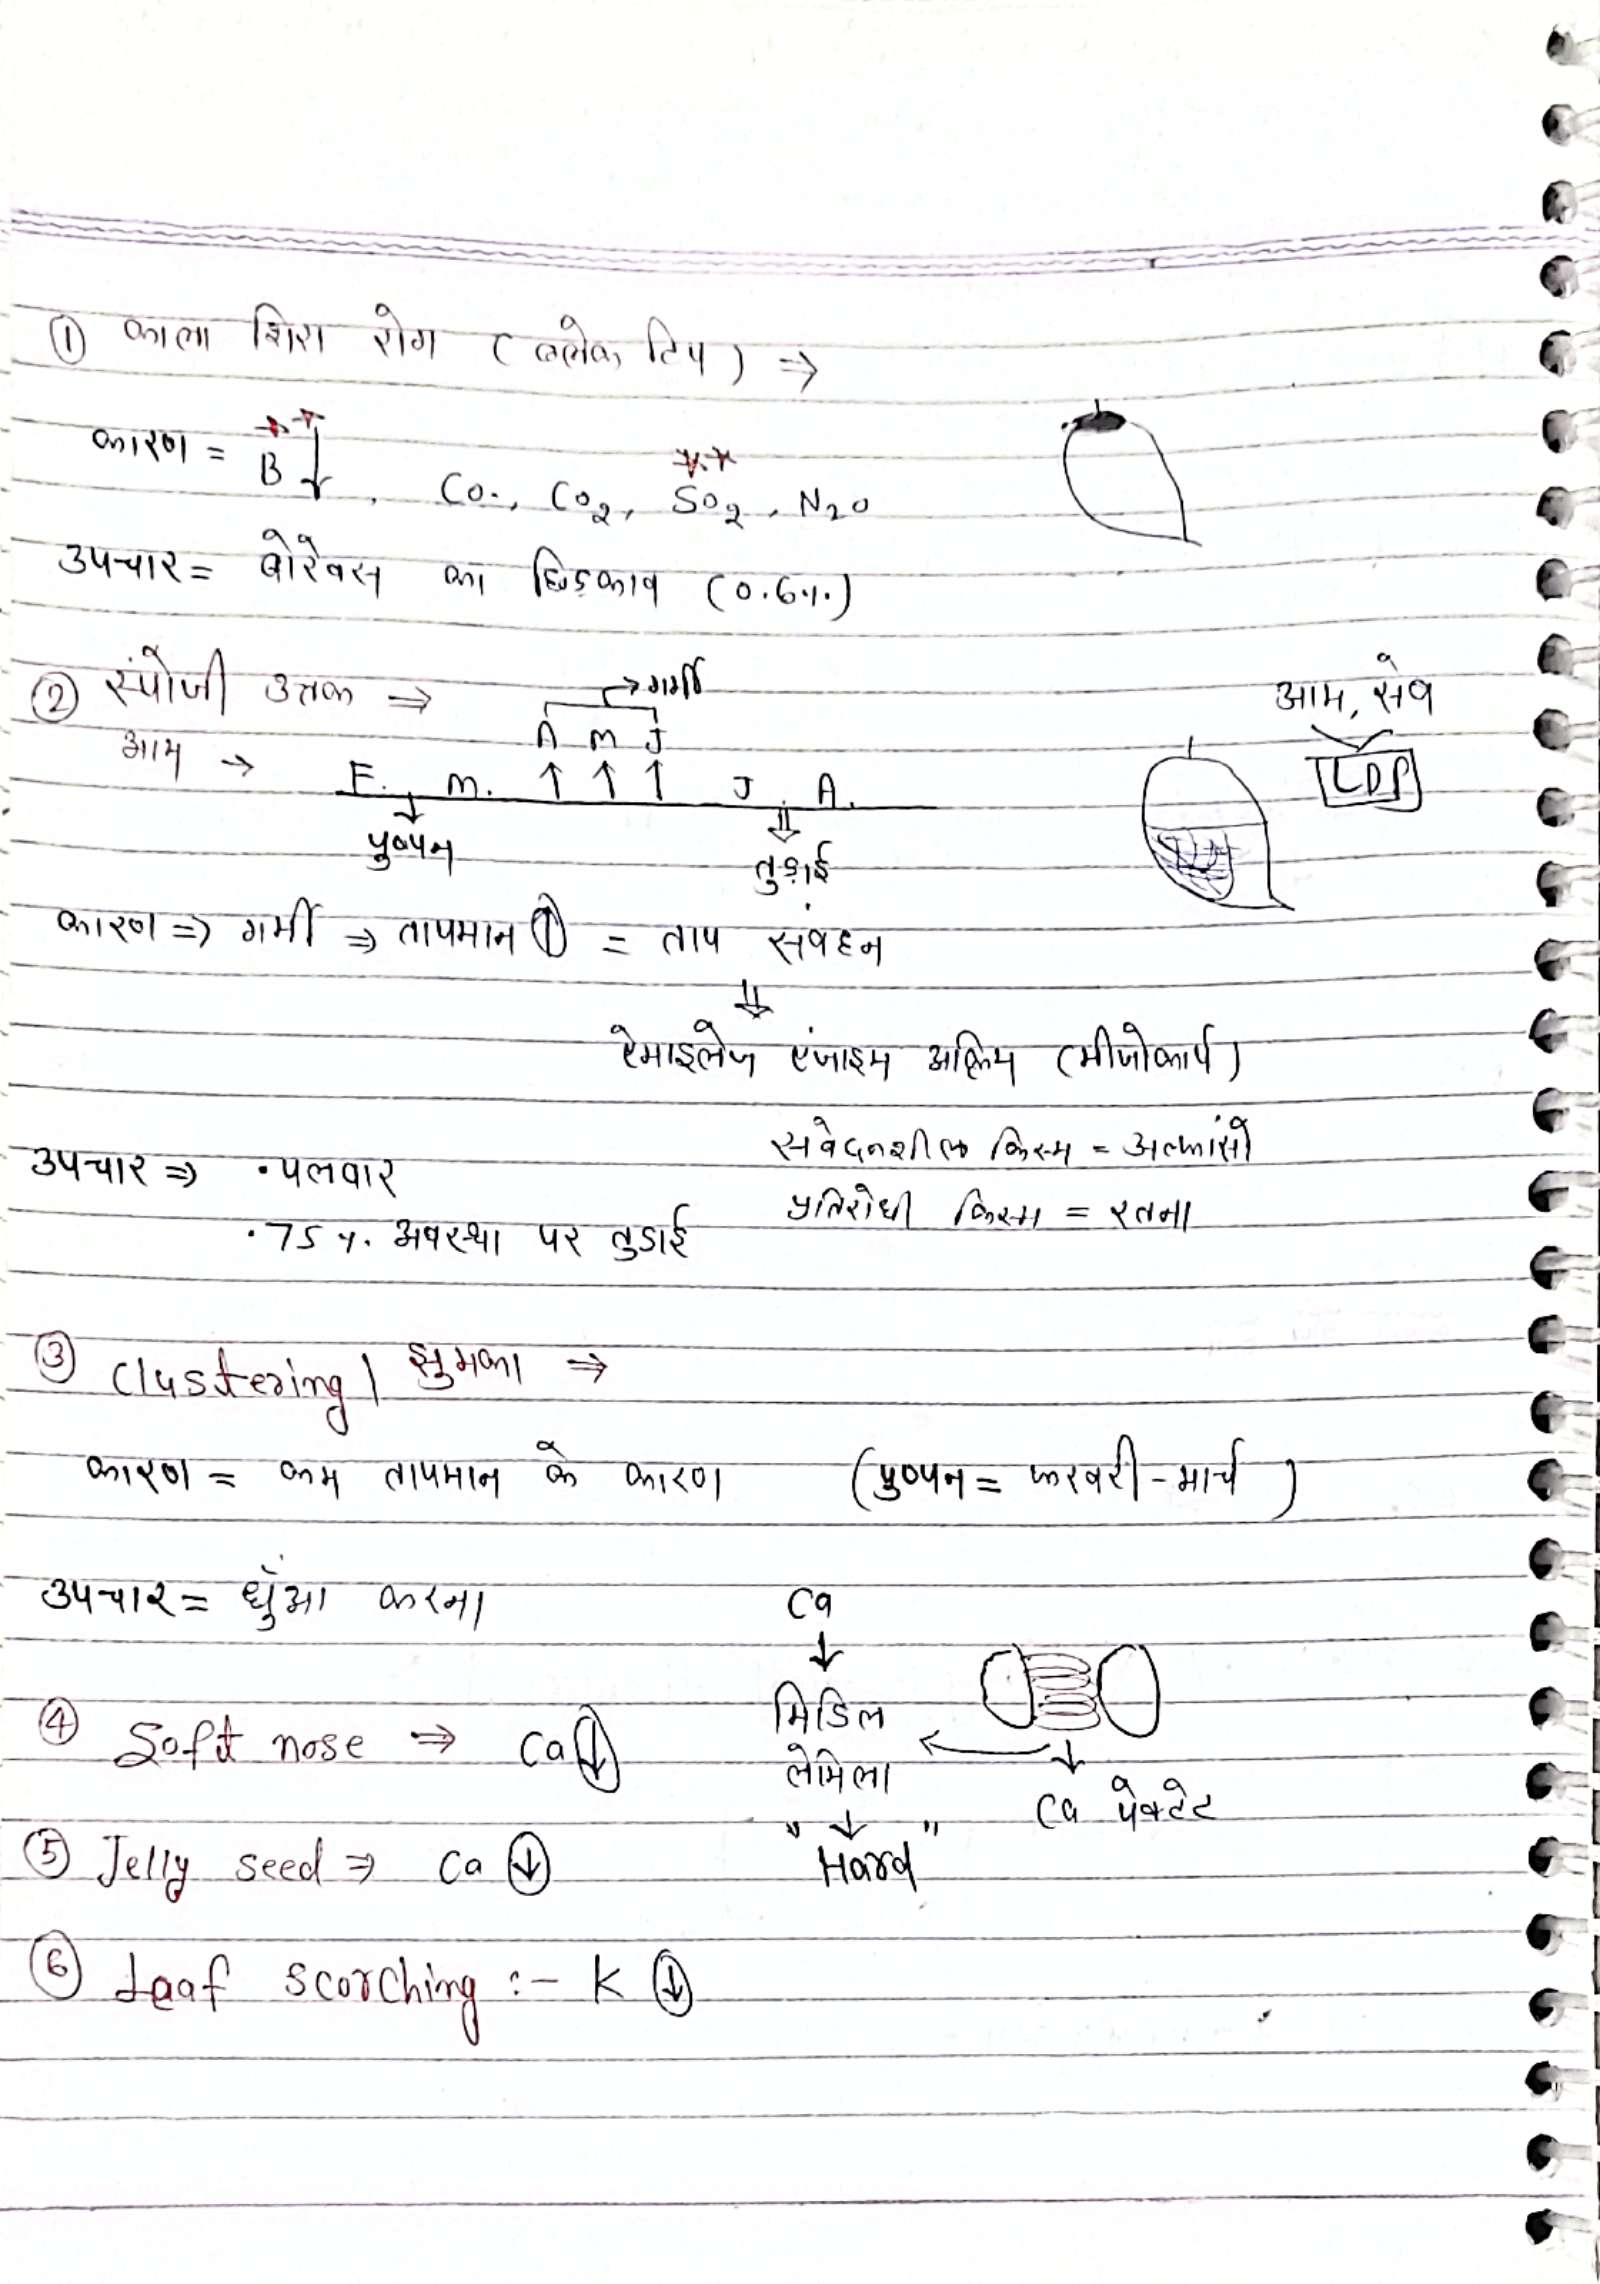 ① काला शिरा रोग (ब्लेक टिप) ⇒
कारण = B↓, CO., CO2, SO2, N2O
उपचार = बोरेक्स का छिड़काव (0.6%)
② स्पंोजी उत्तक ⇒
→ गर्मी
आम, सेव
LDP
आम → F. M. A M J J A.
↑ ↑ ↑
पुष्पन
तुड़ाई
कारण ⇒ गर्मी ⇒ तापमान ↑ = ताप संवहन
⇓
ऐमाइलेज एंजाइम अक्रिय (मीजोकार्प)
संवेदनशील किस्म = अल्फांसो
उपचार ⇒ • पलवार
प्रतिरोधी किस्म = रतना
• 75 %. अवस्था पर तुडाई
③ Clustering / झुमका ⇒
कारण = कम तापमान के कारण (पुष्पन = फरवरी - मार्च)
उपचार = धुँआ करना
Ca
↓
④ Soft nose ⇒ Ca ↓
मिडिल
लेमिला
Ca पेक्टेट
"↓"
Hard
⑤ Jelly seed ⇒ Ca ↓
⑥ Leaf scorching :- K ↓